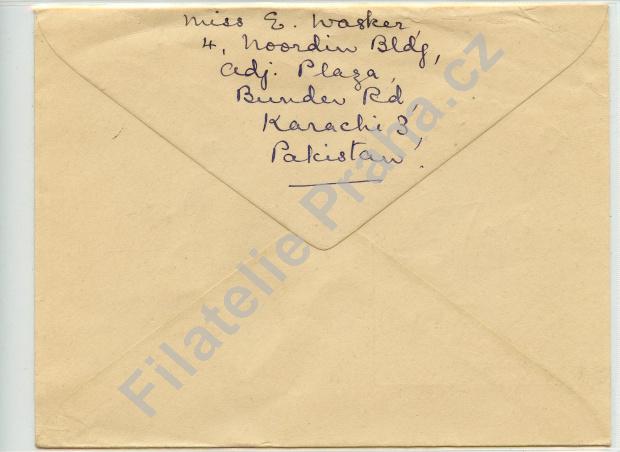 Miss E. Wasker,
4, Noordin Bldg,
Adj. Plaza,
Bunder Rd,
Karachi 3,
Pakistan.
Filatelie Praha.cz